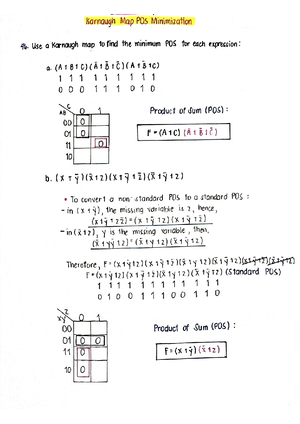 Karnaugh Map POS Minimization
Use a Karnaugh map to find the minimum POS for each expression:
a. (A+B+C)(A+B̄+C̄)(A+B+C)
1 1 1 1 1 1 1 1 1
0 0 0 1 1 1 0 1 0
C
AB 0 1
00 0
01 0
11 0
10
Product of Sum (POS):
F = (A+C)(Ā+B̄+C̄)
b. (x+ȳ)(x̄+z)(x+ȳ+z̄)(x̄+ȳ+z)
• To convert a non-standard POS to a standard POS:
- in (x+ȳ), the missing variable is z, hence,
(x+ȳ+zz̄)=(x+ȳ+z)(x+ȳ+z̄)
- in (x̄+z), y is the missing variable, then,
(x̄+yȳ+z)=(x̄+y+z)(x̄+ȳ+z)
F=(x+ȳ+z)(x+ȳ+z̄)(x̄+y+z)(x̄+ȳ+z) (Standard POS)
1 1 1 1 1 1 1 1 1 1 1 1
0 1 0 0 1 1 1 0 0 1 1 0
0 1
00
01 0 0
11 0
10 0
Product of Sum (POS):
F = (x+ȳ)(x̄+z)